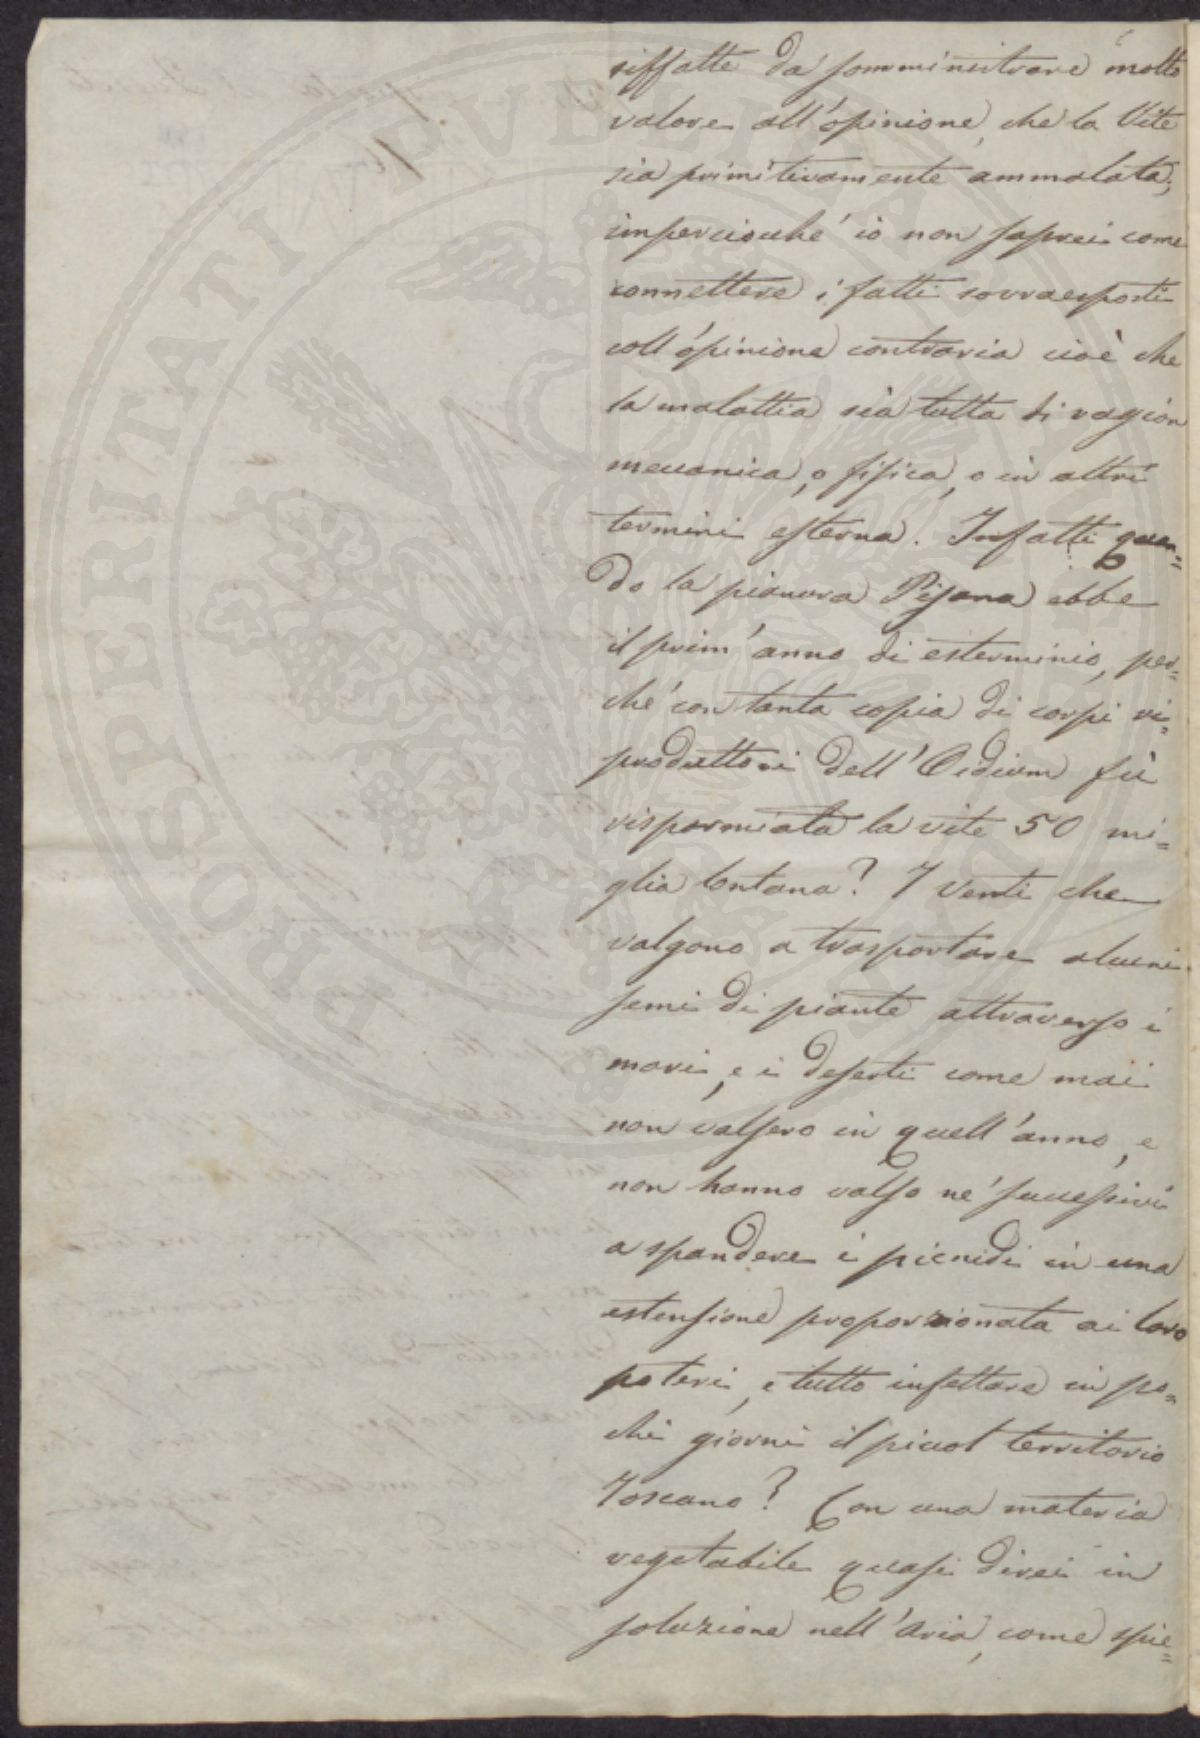 siffatte da somministrare molto
valore all'opinione, che la Vite
sia primitivamente ammalata;
imperciocché io non saprei come
connettere i fatti sovraesposti
coll'opinione contraria cioè che
la malattia sia tutta di ragion
meccanica, o fisica, o in altri
termini esterna. Infatti quan=
do la pianura Pisana ebbe
il prim'anno di esterminio, per=
ché con tanta copia di corpi ri=
produttori dell'Oidium fù
risparmiata la vite 50 mi=
glia lontana? I venti che
valgono a trasportare alcuni
semi di piante attraverso i
mari, e i deserti come mai
non valsero in quell'anno, e
non hanno valso ne' successivi
a spandere i picnidi in una
estensione proporzionata ai loro
poteri, e tutto infettare in po=
chi giorni il piccol territorio
Toscano? Con una materia
vegetabile quasi direi in
soluzione nell'aria, come spie=
PROSPERITATI PVBLICAE